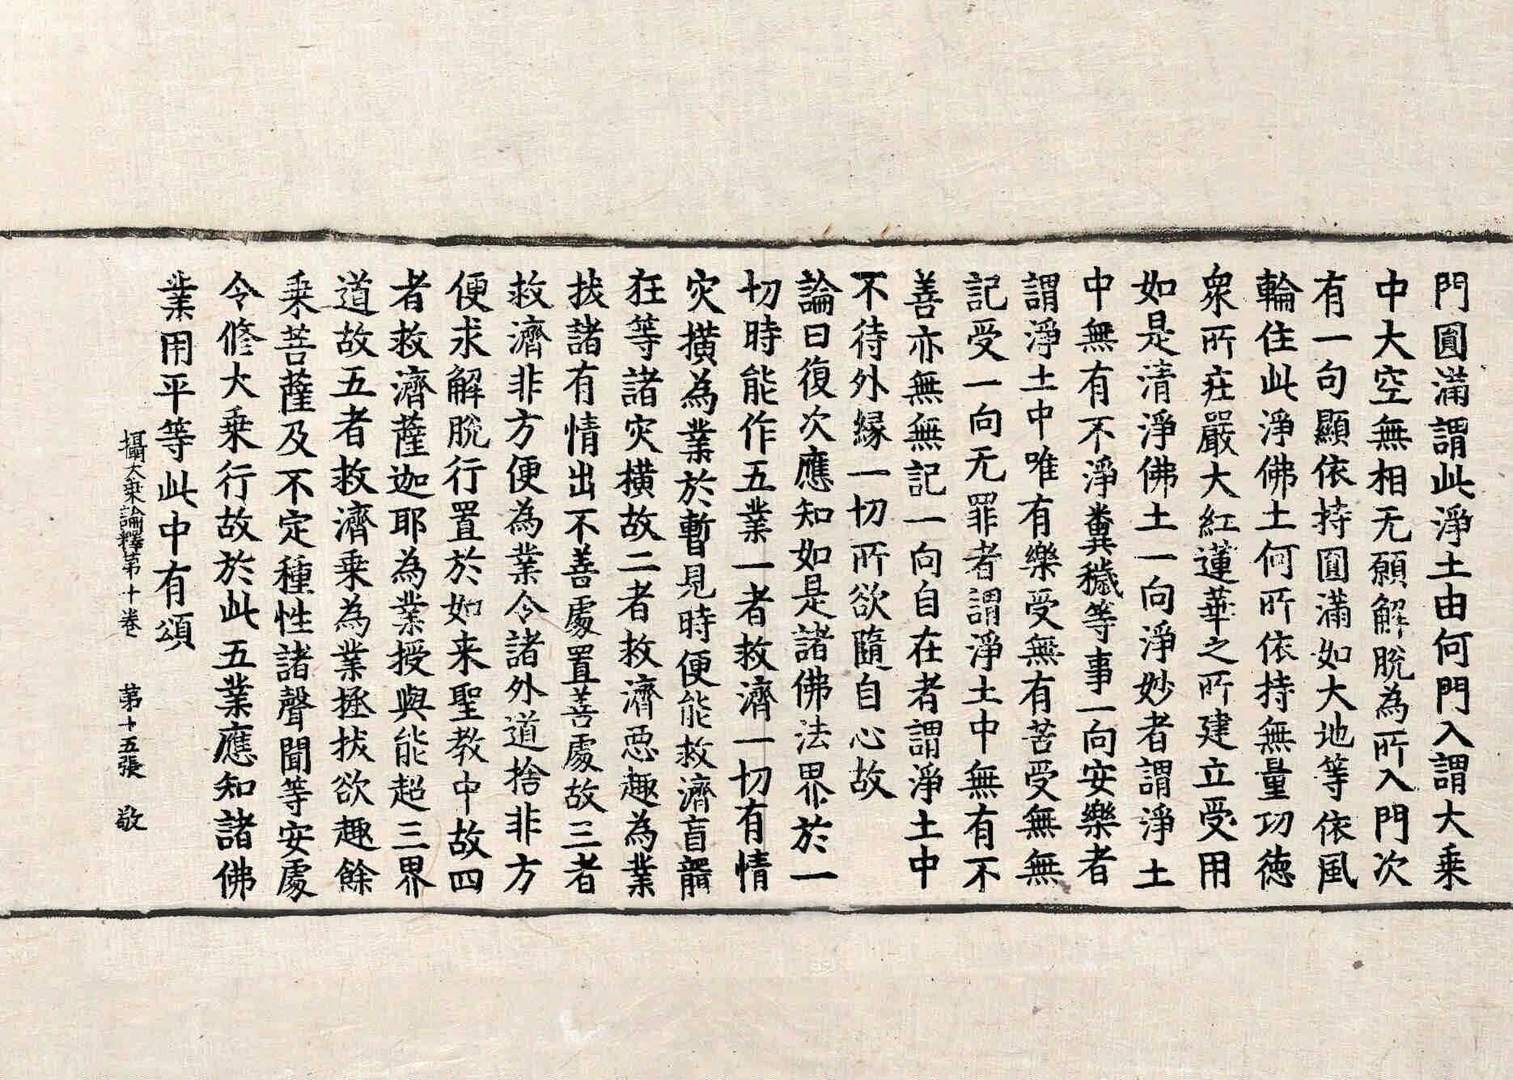 門圓滿謂此淨土由何門入謂大乘
中大空無相无願解脫為所入門次
有一句顯依持圓滿如大地等依風
輪住此淨佛土何所依持無量功德
衆所莊嚴大紅蓮華之所建立受用
如是清淨佛土一向淨妙者謂淨土
中無有不淨糞穢等事一向安樂者
謂淨土中唯有樂受無有苦受無無
記受一向无罪者謂淨土中無有不
善亦無無記一向自在者謂淨土中
不待外緣一切所欲隨自心故
論曰復次應知如是諸佛法界於一
切時能作五業一者救濟一切有情
灾橫為業於暫見時便能救濟盲聾
狂等諸灾橫故二者救濟惡趣為業
拔諸有情出不善處置善處故三者
救濟非方便為業令諸外道捨非方
便求解脫行置於如来聖教中故四
者救濟薩迦耶為業授與能超三界
道故五者救濟乘為業拯拔欲趣餘
乘菩薩及不定種性諸聲聞等安處
令修大乘行故於此五業應知諸佛
業用平等此中有頌
攝大乘論釋第十卷 第十五張 敬